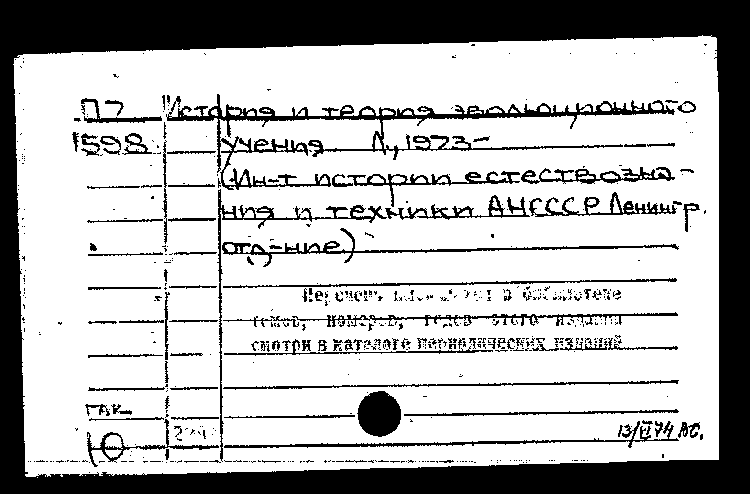 П7 История и теория эволюционного
1598 учения. Л., 1973-
(Ин-т истории естествозна-
ния и техники АН СССР Ленингр.
отд-ние)
Перечень в библиотеке
томов, номеров, годов этого издания
смотри в каталоге периодических изданий
ГАК
Ю 13/VI 74 АС.